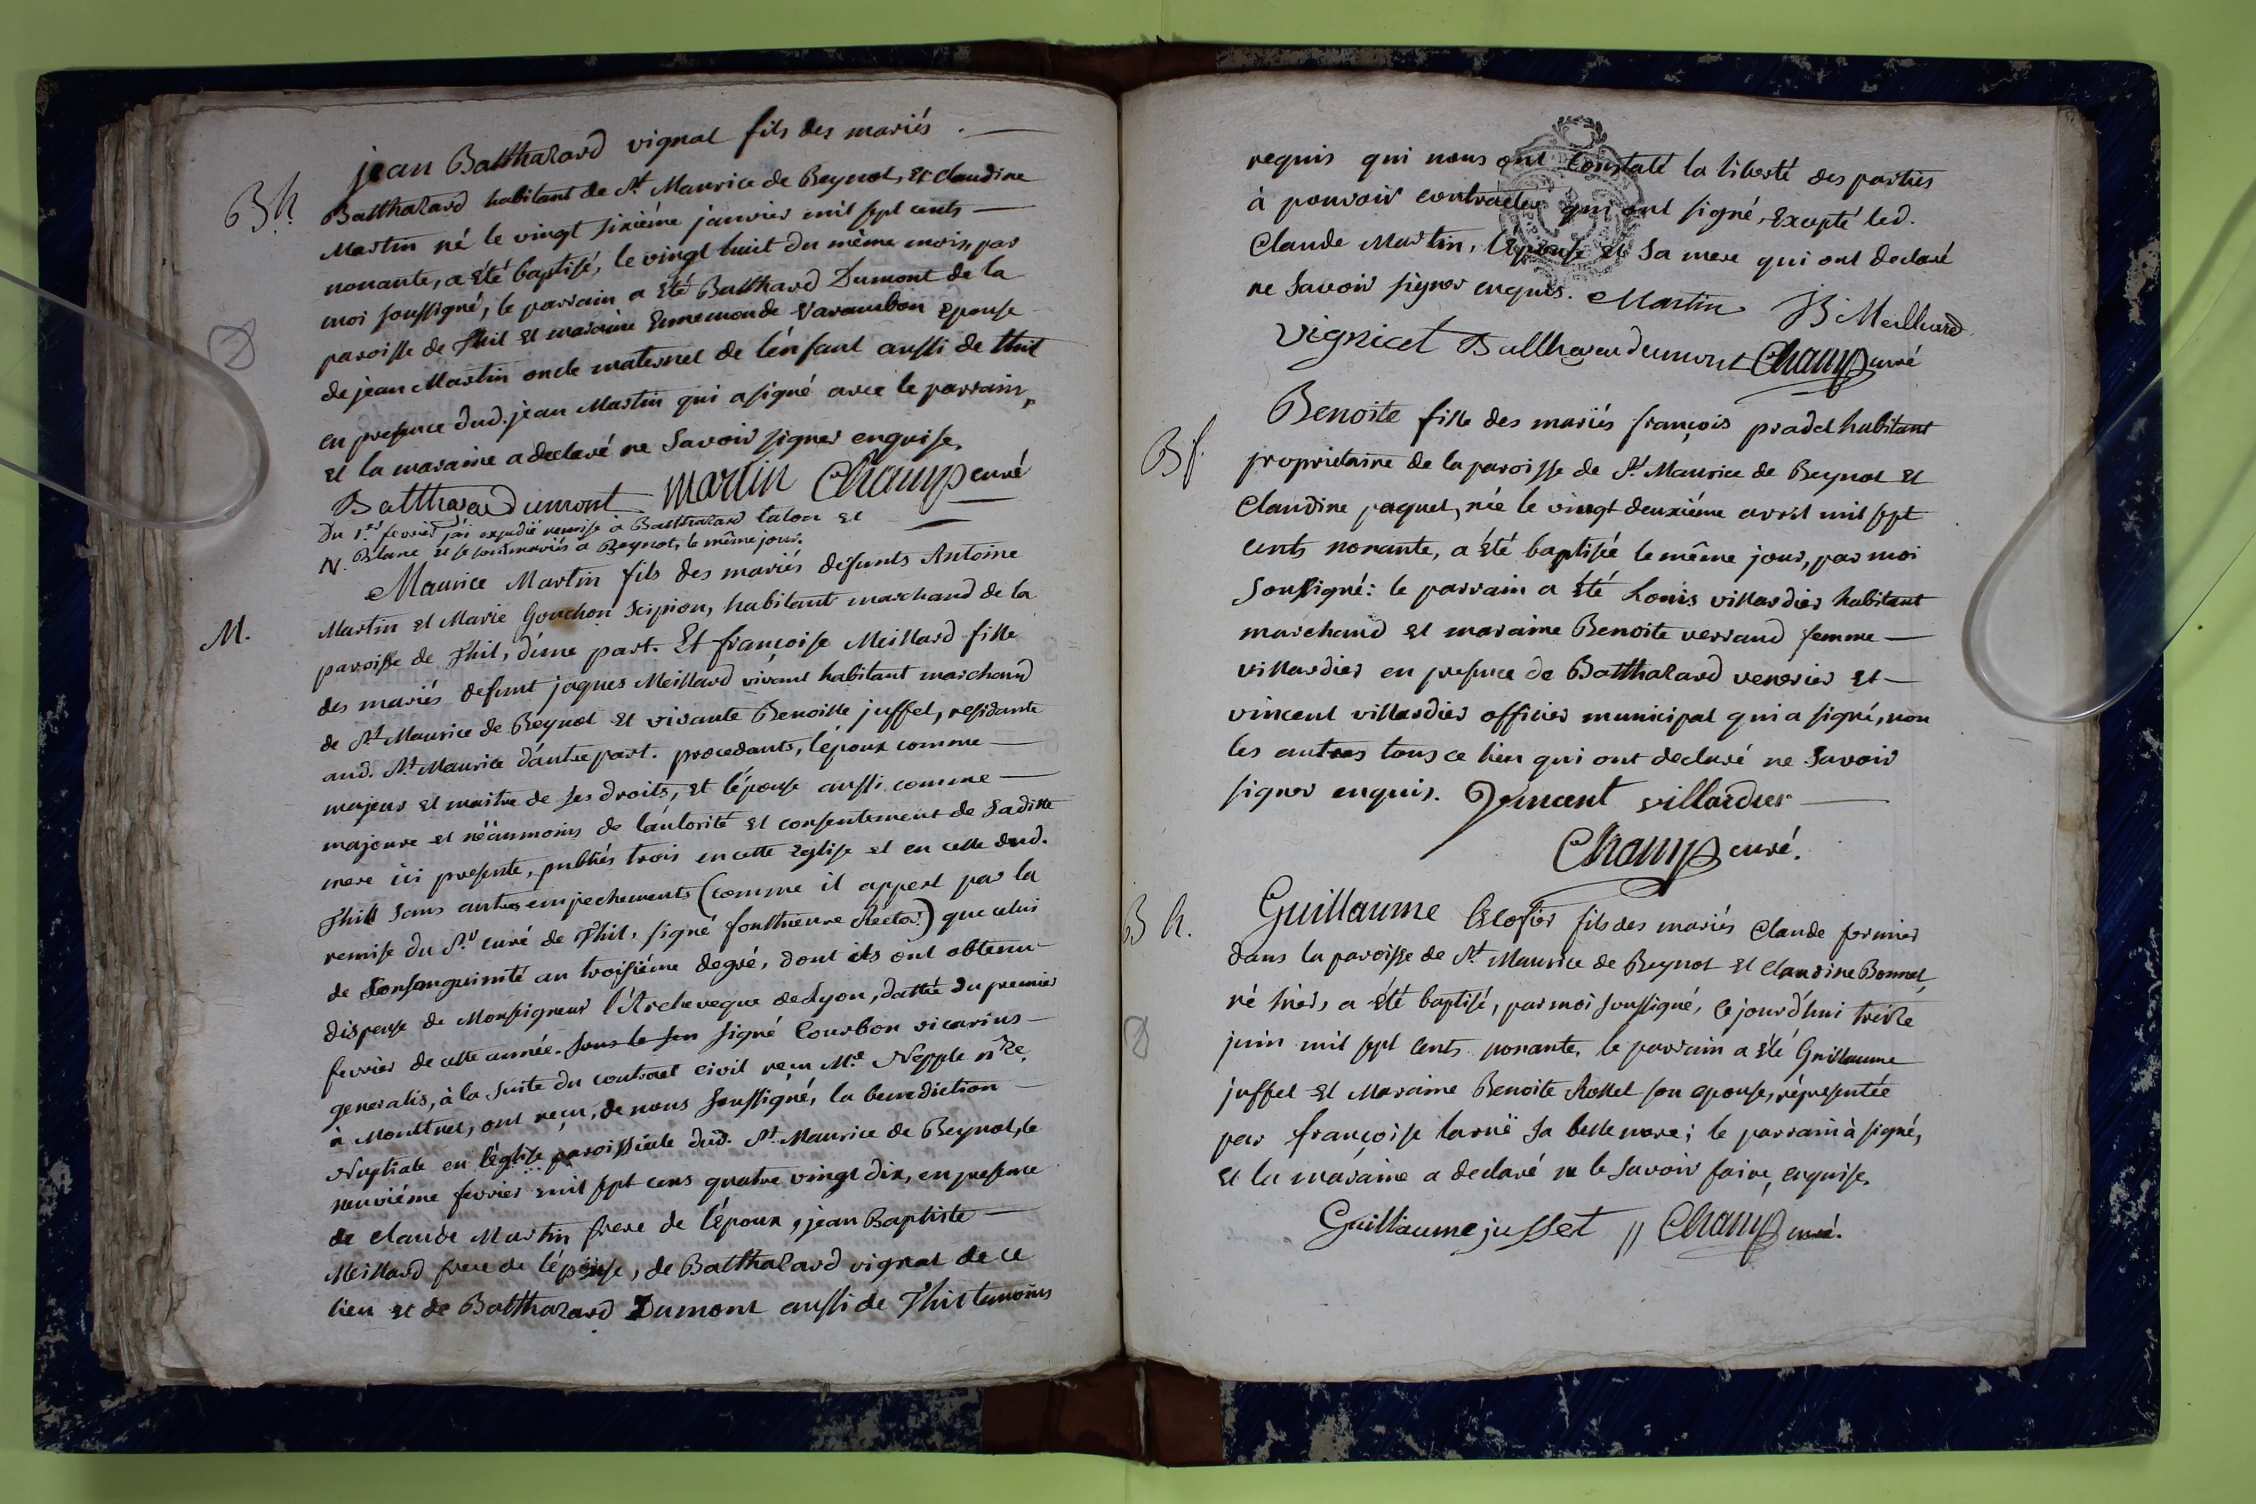 jean Balthazard vignat fils des mariés
B h. Balthazard habitant de St Maurice de Beynot, et Claudine
Martin né le vingt sixiéme janvier mil sept cents
nonante, a été baptisé, le vingt huit du même mois, par
moi soussigné, le parrain a été Balthazard Dumont de la
paroisse de Thil et maraine Ennemonde Varambon epouse
de jean Martin oncle maternel de l'énfant aussi de thil
en presence dud. jean Martin qui a signé avec le parrain,
et la maraine a declaré ne savoir signer enquise.
Balthazard Dumont martin Champ curé
Du 1er fevrier j'ai expedié remise à Balthazard talon et
N. Blanc et se sont mariés a Beynot, le même jour.
Maurice Martin fils des mariés defunts Antoine
M. Martin et Marie Gouchon Scipion, habitant marchand de la
paroisse de Thil, d'une part. Et françoise Meillard fille
des mariés defunt jaques Meillard vivant habitant marchand
de St Maurice de Beynot et vivante Benoitte juffet, residante
aud. St Maurice d'autre part. procedants, l'époux comme
majeur et maitre de ses droits, et l'épouse aussi comme
majeure et néanmoins de l'autorité et consentement de saditte
mere ici presente, publiés trois en cette Eglise et en celle dud.
Thil sans autres empechements (comme il appert par la
remise du Sr curé de Thil, signé fontneuve Rector.) que celui
de Consanguinité au troisiéme degré, dont ils ont obtenu
dispense de Monseigneur l'Archeveque de Lyon, dattée du premier
fevrier de cette année. sous le sen signé Courbon vicarius
generalis, à la suite du contract civil reçu Me Nepple nre.
à Montluel, ont reçu, de nous soussigné, la benediction
Nuptiale en l'église paroissiale dud. St Maurice de Beynot, le
neuviéme fevrier mil sept cens quatre vingt dix, en presence
de claude Martin frere de l'époux, jean Baptiste
Meillard frere de l'épouse, de Balthazard vignat de ce
lieu et de Balthazard Dumont aussi de Thil temoins
requis qui nous ont Constaté la liberté des parties
à pouvoir contracter qui ont signé, Excepté led.
Claude Martin, l'épouse et sa mere qui ont declaré
ne savoir signer enquis. Martin JB Meilliard
Vignict Balthazar dumont Champ curé
Benoite fille des mariés françois pradel habitant
B f. proprietaire de la paroisse de St Maurice de Beynot et
Claudine paquet, née le vingt deuxiéme avril mil sept
cents nonante, a été baptisée le même jour, par moi
soussigné: le parrain a été Louis villardier habitant
marchand et maraine Benoite verrand femme
villardier en presence de Balthazard venerier et
vincent villardier officier municipal qui a signé, non
les autres tous ce lieu qui ont declaré ne savoir
signer enquis. Vincent villardier
Champ curé.
B h. Guillaume fils des mariés Claude fermier
dans la paroisse de St Maurice de Beynot et Claudine Bonnet,
né hier, a été baptisé, par moi soussigné, ce jourd'hui treize
juin mil sept cents nonante, le parrain a été Guillaume
juffet et Maraine Benoite Rollet son epouse, répresentée
par françoise larüe sa belle mere; le parrain à signé,
et la maraine a declaré ne le savoir faire, enquise.
Guillaume juffet // Champ curé.